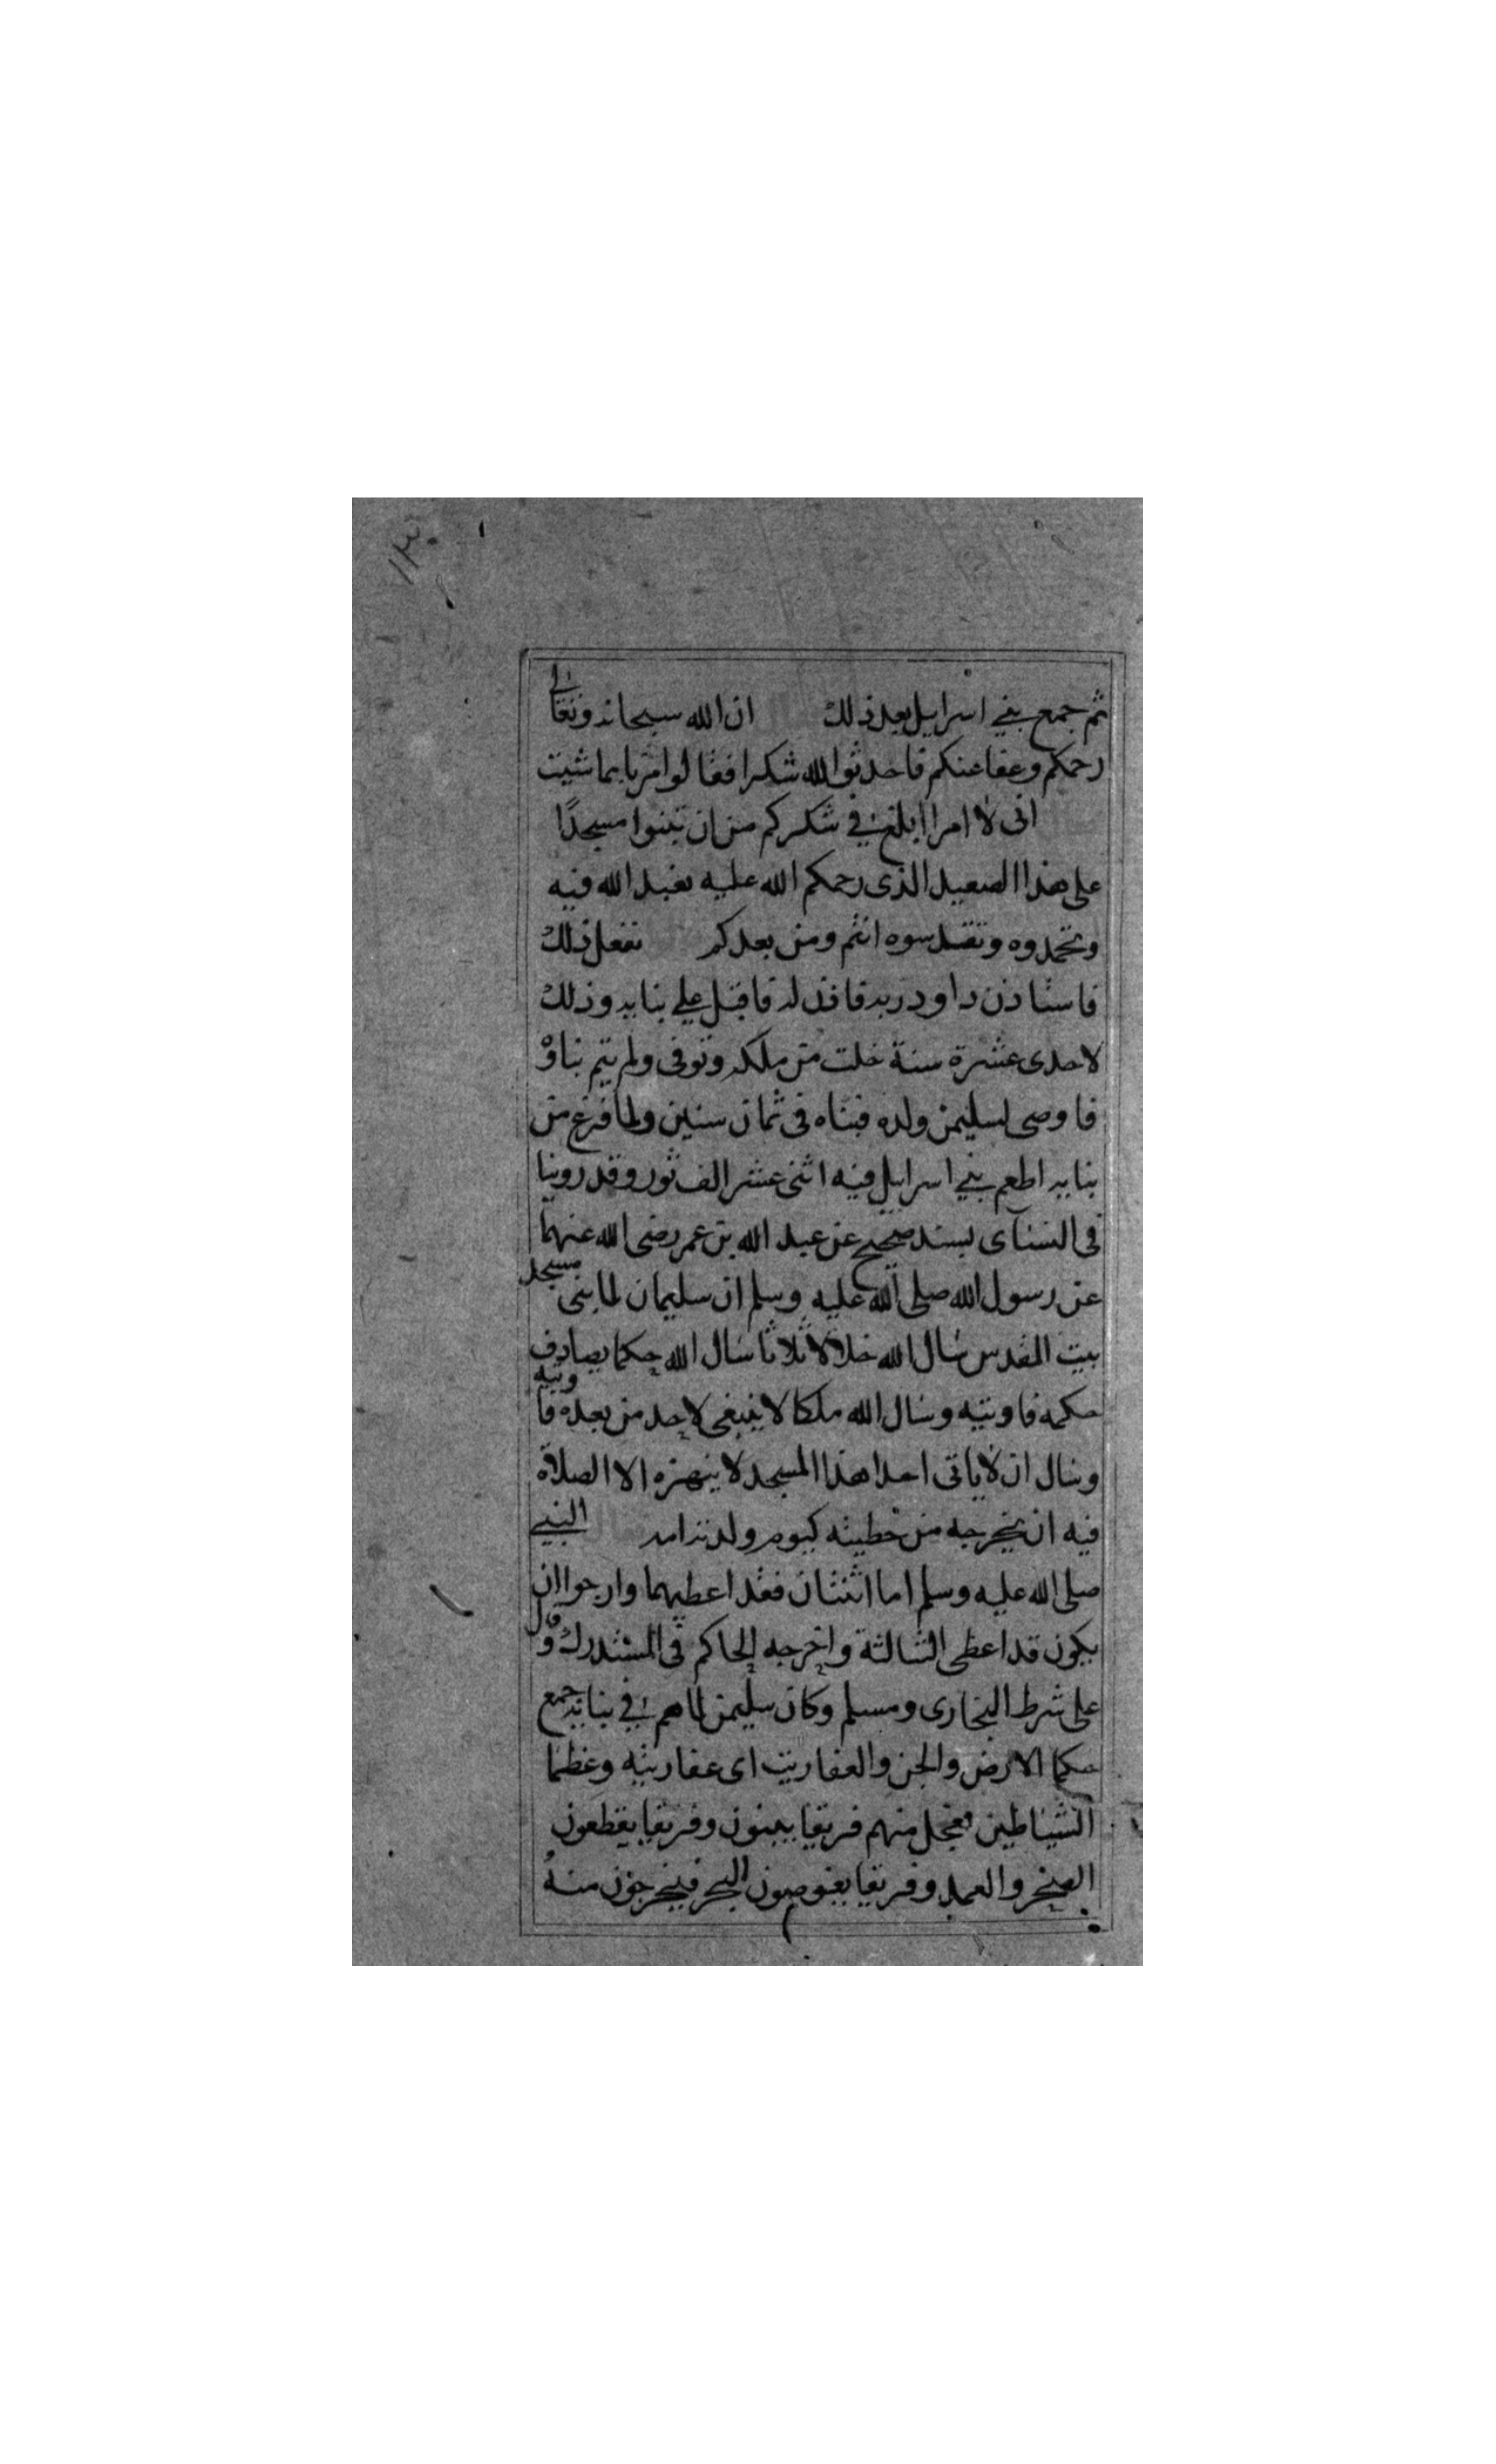 ١٣٠
ثم جمع بني اسرايل بعد ذلك ان الله سبحانه وتعالى
رحمكم وعفا عنكم فاحدثوا لله شكرا فقالوا مرنا بما شيت
انى لا امرا ابلغ في شكركم من ان تبنوا مسجدًا
على هذا الصعيد الذى رحمكم الله عليه نعبد الله فيه
وتحمدوه وتقدسوه انتم ومن بعدكم نفعل ذلك
فاستاذن داود ربه فاذن له فاقبل علي بنايه وذلك
لاحدى عشرة سنة خلت من ملكه وتوفى ولم يتم بناوه
فاوصى لسليمن ولده فبناه فى ثمان سنين ولما فرغ من
بنايه اطعم بني اسرايل فيه اثنى عشر الف ثور وقد روينا
فى النسآى بسند صحيح عن عبد الله بن عمر رضى الله عنهما
عن رسول الله صلى الله عليه وسلم ان سليمان لما بنى مسجد
بيت المقدس سال الله خلالا ثلاثا سال الله حكما يصادف
حكمه فاوتيه وسال الله ملكا لا ينبغى لاحد من بعده فاوتيه
وسال ان لا ياتى احد هذا المسجد لا ينهزه الا الصلاة
فيه ان يخرجه من خطيئه كيوم ولدته امه فقال النبي
صلى الله عليه وسلم اما اثنتان فقد اعطيهما وارجوا ان
يكون قد اعطى الثالثة واخرجه الحاكم فى المستدرك وقال
على شرط البخارى ومسلم وكان سليمن لما هم في بنايه جمع
حكما الارض والجن والعفاريت اى عفاريته وعظما
الشياطين فجعل منهم فريقا يبنون وفريقا يقطعون
الصخر والعمد وفريقا يغوصون البحر فيخرجون منه